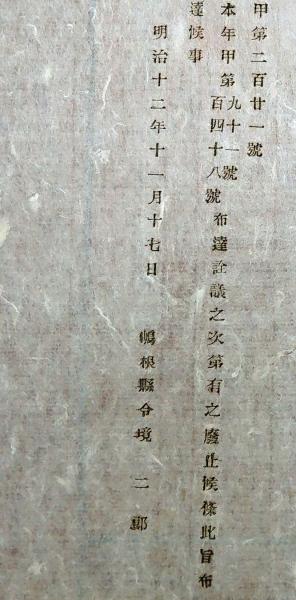 甲第二百廿一號
本年甲第九十一號百四十八號布達詮議之次第有之廢止候條此旨布
達候事
明治十二年十一月十七日 嶋根縣令境二郎